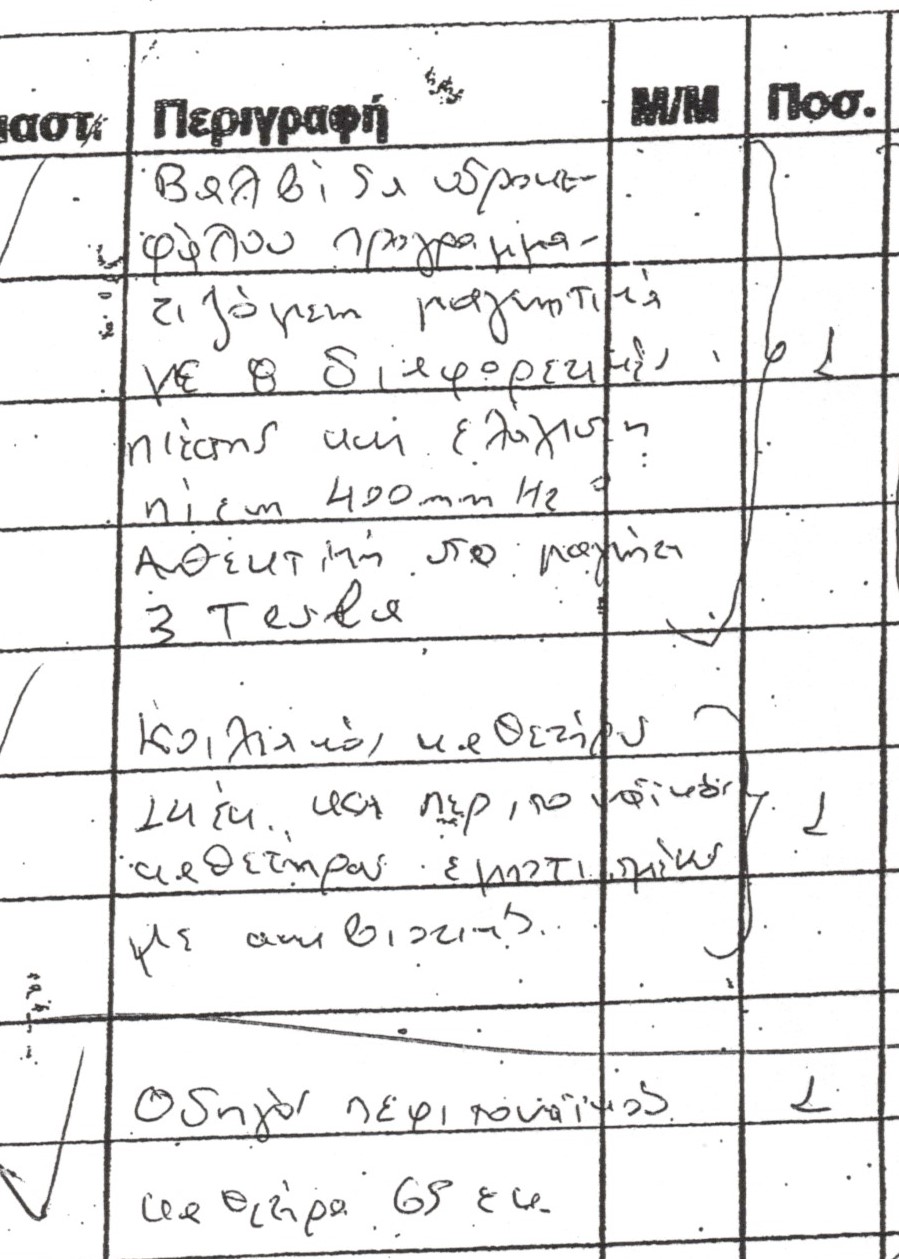 ιαστ. Περιγραφή Μ/Μ Ποσ.
Βαλβίδα υδροκε-
φάλου προγραμμα-
τιζόμενη μαγνητικά
με 8 διαφορετικές 1
πιέσης και ελάχιστη
πίεση 400 mm H2O
Ανθεκτική στο μαγνήτη
3 Tesla
Κοιλιακός καθετήρας
εκ. και περιτοναϊκός 1
καθετήρας εμποτισμένος
με αντιβιοτικά.
Οδηγός περιτοναϊκού 1
καθετήρα 65 εκ.